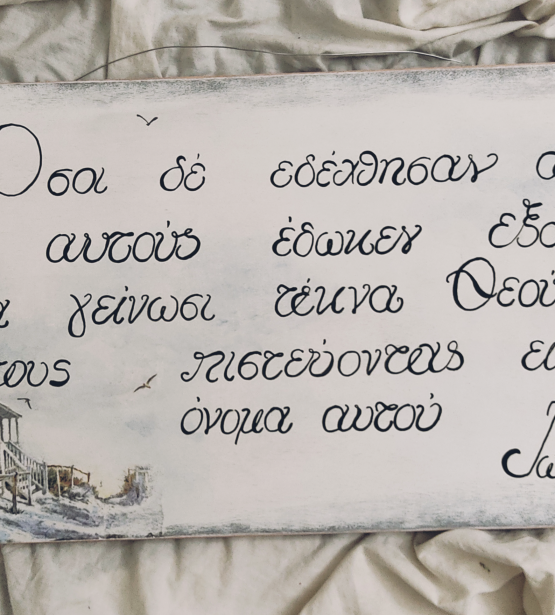 Όσαι δέ εδέχθησαν
αυτούς έδωκεν εξο
γείνωσι τέκνα Θεού
τους πιστεύοντας ει
όνομα αυτού
Ιω